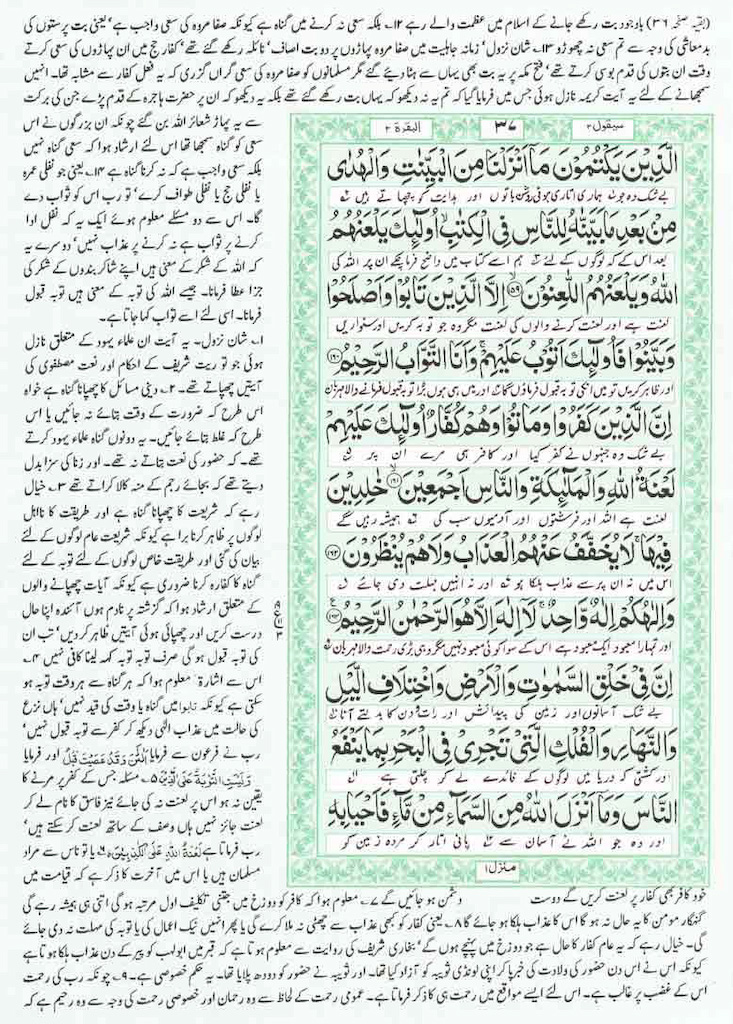 (بقیہ صفحہ ۳۶) باوجود بت رکھے جانے کے اسلام میں عظمت والے رہے ۱۲۔ بلکہ سعی نہ کرنے میں گناہ ہے کیونکہ صفا مروہ کی سعی واجب ہے' یعنی بت پرستوں کی
بدمعاشی کی وجہ سے تم سعی نہ چھوڑو ۱۳۔ شان نزول' زمانہ جاہلیت میں صفا مروہ پہاڑوں پر دو بت اصاف' نائلہ رکھے گئے تھے' کفار حج میں ان پہاڑوں کی سعی کرتے
وقت ان بتوں کی قدم بوسی کرتے تھے' فتح مکہ پر یہ بت بھی یہاں سے ہٹا دیئے گئے مگر مسلمانوں کو صفا مروہ کی سعی گراں گزری کہ یہ فعل کفار سے مشابہ تھا۔ انہیں
سمجھانے کے لئے یہ آیت کریمہ نازل ہوئی جس میں فرمایا گیا کہ تم یہ نہ دیکھو کہ یہاں بت رکھے گئے تھے بلکہ یہ دیکھو کہ ان پر حضرت ہاجرہ کے قدم پڑے جن کی برکت
سیقول ۲
۳۷
البقرۃ ۲
الَّذِیْنَ یَكْتُمُوْنَ مَاۤ اَنْزَلْنَا مِنَ الْبَیِّنٰتِ وَالْهُدٰى
بے شک وہ جو ہماری اتاری ہوئی روشن باتوں اور ہدایت کو چھپاتے ہیں
مِنْۢ بَعْدِ مَا بَیَّنّٰهُ لِلنَّاسِ فِی الْكِتٰبِ اُولٰٓىٕكَ یَلْعَنُهُمُ
بعد اس کے کہ لوگوں کے لئے ہم اسے کتاب میں واضح فرما چکے ان پر اللہ کی
اللّٰهُ وَیَلْعَنُهُمُ اللّٰعِنُوْنَ ۱۵۹ اِلَّا الَّذِیْنَ تَابُوْا وَاَصْلَحُوْا
لعنت ہے اور لعنت کرنے والوں کی لعنت مگر وہ جو توبہ کریں اور سنواریں
وَبَیَّنُوْا فَاُولٰٓىٕكَ اَتُوْبُ عَلَیْهِمْ وَاَنَا التَّوَّابُ الرَّحِیْمُ ۱۶۰
اور ظاہر کریں تو میں انکی توبہ قبول فرماؤں گا اور میں ہی ہوں بڑا توبہ قبول فرمانے والا مہربان
اِنَّ الَّذِیْنَ كَفَرُوْا وَمَاتُوْا وَهُمْ كُفَّارٌ اُولٰٓىٕكَ عَلَیْهِمْ
بے شک وہ جنہوں نے کفر کیا اور کافر ہی مرے ان پر
لَعْنَةُ اللّٰهِ وَالْمَلٰٓىٕكَةِ وَالنَّاسِ اَجْمَعِیْنَ ۱۶۱ خٰلِدِیْنَ
لعنت ہے اللہ اور فرشتوں اور آدمیوں سب کی ہمیشہ رہیں گے
فِیْهَا لَا یُخَفَّفُ عَنْهُمُ الْعَذَابُ وَلَا هُمْ یُنْظَرُوْنَ ۱۶۲
اس میں نہ ان پر سے عذاب ہلکا ہو اور نہ انہیں مہلت دی جائے
وَاِلٰهُكُمْ اِلٰهٌ وَّاحِدٌ لَاۤ اِلٰهَ اِلَّا هُوَ الرَّحْمٰنُ الرَّحِیْمُ ۱۶۳
اور تمہارا معبود ایک معبود ہے اس کے سوا کوئی معبود نہیں مگر وہی بڑی رحمت والا مہربان
اِنَّ فِیْ خَلْقِ السَّمٰوٰتِ وَالْاَرْضِ وَاخْتِلَافِ الَّیْلِ
بے شک آسمانوں اور زمین کی پیدائش اور رات و دن کا بدلتے آنا
وَالنَّهَارِ وَالْفُلْكِ الَّتِیْ تَجْرِیْ فِی الْبَحْرِ بِمَا یَنْفَعُ
اور کشتی کہ دریا میں لوگوں کے فائدے لے کر چلتی ہے
النَّاسَ وَمَاۤ اَنْزَلَ اللّٰهُ مِنَ السَّمَآءِ مِنْ مَّآءٍ فَاَحْیَا بِهِ
اور وہ جو اللہ نے آسمان سے پانی اتار کر مردہ زمین کو
منزل ۱
سے یہ پہاڑ شعائر اللہ بن گئے چونکہ ان بزرگوں نے اس
سعی کو گناہ سمجھا تھا اس لئے ارشاد ہوا کہ سعی گناہ نہیں
بلکہ سعی واجب ہے کہ نہ کرنا گناہ ہے ۱۴۔ یعنی جو نفلی عمرہ
یا نفلی حج یا نفلی طواف کرے' تو رب اس کو ثواب دے
گا۔ اس سے دو مسئلے معلوم ہوئے ایک یہ کہ نفل ادا
کرنے پر ثواب ہے نہ کرنے پر عذاب نہیں' دوسرے یہ
کہ اللہ کے شکر کے معنی ہیں اپنے شاکر بندوں کے شکر کی
جزا عطا فرمانا۔ جیسے اللہ کی توبہ کے معنی ہیں توبہ قبول
فرمانا۔ اسی لئے اسے تواب کہا جاتا ہے۔
۱۔ شان نزول۔ یہ آیت ان علماء یہود کے متعلق نازل
ہوئی جو توریت شریف کے احکام اور نعت مصطفوی کی
آیتیں چھپاتے تھے۔ ۲۔ دینی مسائل کا چھپانا گناہ ہے خواہ
اس طرح کہ ضرورت کے وقت بتائے نہ جائیں یا اس
طرح کہ غلط بتائے جائیں۔ یہ دونوں گناہ علماء یہود کرتے
تھے۔ کہ حضور کی نعت بتاتے نہ تھے۔ اور زنا کی سزا بدل
دیتے تھے کہ بجائے رجم کے منہ کالا کراتے تھے ۳۔ خیال
رہے کہ شریعت کا چھپانا گناہ ہے اور طریقت کا نااہل
لوگوں پر ظاہر کرنا برا ہے کیونکہ شریعت عام لوگوں کے لئے
بیان کی گئی اور طریقت خاص لوگوں کے لئے توبہ کے لئے
گناہ کا کفارہ کرنا ضروری ہے کیونکہ آیات چھپانے والوں
کے متعلق ارشاد ہوا کہ گزشتہ پر نادم ہوں آئندہ اپنا حال
درست کریں اور چھپائی ہوئی آیتیں ظاہر کر دیں' تب ان
کی توبہ قبول ہو گی صرف توبہ توبہ کہہ لینا کافی نہیں ۴۔
اس سے اشارۃً معلوم ہوا کہ ہر گناہ سے ہر وقت توبہ ہو
سکتی ہے کیونکہ تابوا میں گناہ یا وقت کی قید نہیں' ہاں نزع
کی حالت میں عذاب الٰہی دیکھ کر کفر سے توبہ قبول نہیں'
رب نے فرعون سے فرمایا آلْـٰٔنَ وَقَدْ عَصَیْتَ قَبْلُ اور فرمایا
وَلَیْسَتِ التَّوْبَةُ عَلَى الَّذِیْنَ ۵۔ مسئلہ جس کے کفر پر مرنے کا
یقین نہ ہو اس پر لعنت نہ کی جائے نیز فاسق کا نام لے کر
لعنت جائز نہیں ہاں وصف کے ساتھ لعنت کر سکتے ہیں'
رب فرماتا ہے لَعْنَةُ اللّٰهِ عَلَى الْكٰذِبِیْنَ ۶۔ یا تو ناس سے مراد
مسلمان ہیں یا اس میں آخرت کا ذکر ہے کہ قیامت میں
خود کافر بھی کفار پر لعنت کریں گے دوست دشمن ہو جائیں گے ۷۔ معلوم ہوا کہ کافر کو دوزخ میں جتنی تکلیف اول مرتبہ ہو گی اتنی ہی ہمیشہ رہے گی
گنہگار مومن کا یہ حال نہ ہو گا اس کا عذاب ہلکا ہو جائے گا ۸۔ یعنی کفار کو کبھی عذاب سے چھٹی نہ ملا کرے گی یا پھر انہیں نیک اعمال کی یا توبہ کی مہلت نہ دی جائے
گی۔ خیال رہے کہ یہ عام کفار کا حال ہے جو دوزخ میں پہنچے ہوں گے' بخاری شریف کی روایت سے معلوم ہوتا ہے کہ قبر میں ابو لہب کو پیر کے دن عذاب ہلکا ہوتا ہے
کیونکہ اس نے اس دن حضور کی ولادت کی خبر پا کر اپنی لونڈی ثویبہ کو آزاد کیا تھا۔ اور ثویبہ نے حضور کو دودھ پلایا تھا۔ یہ حکم خصوصی ہے۔ ۹۔ چونکہ رب کی رحمت
اس کے غضب پر غالب ہے۔ اس لئے ایسے مواقع میں رحمت ہی کا ذکر فرماتا ہے۔ عمومی رحمت کے لحاظ سے وہ رحمان اور خصوصی رحمت کی وجہ سے وہ رحیم ہے کہ